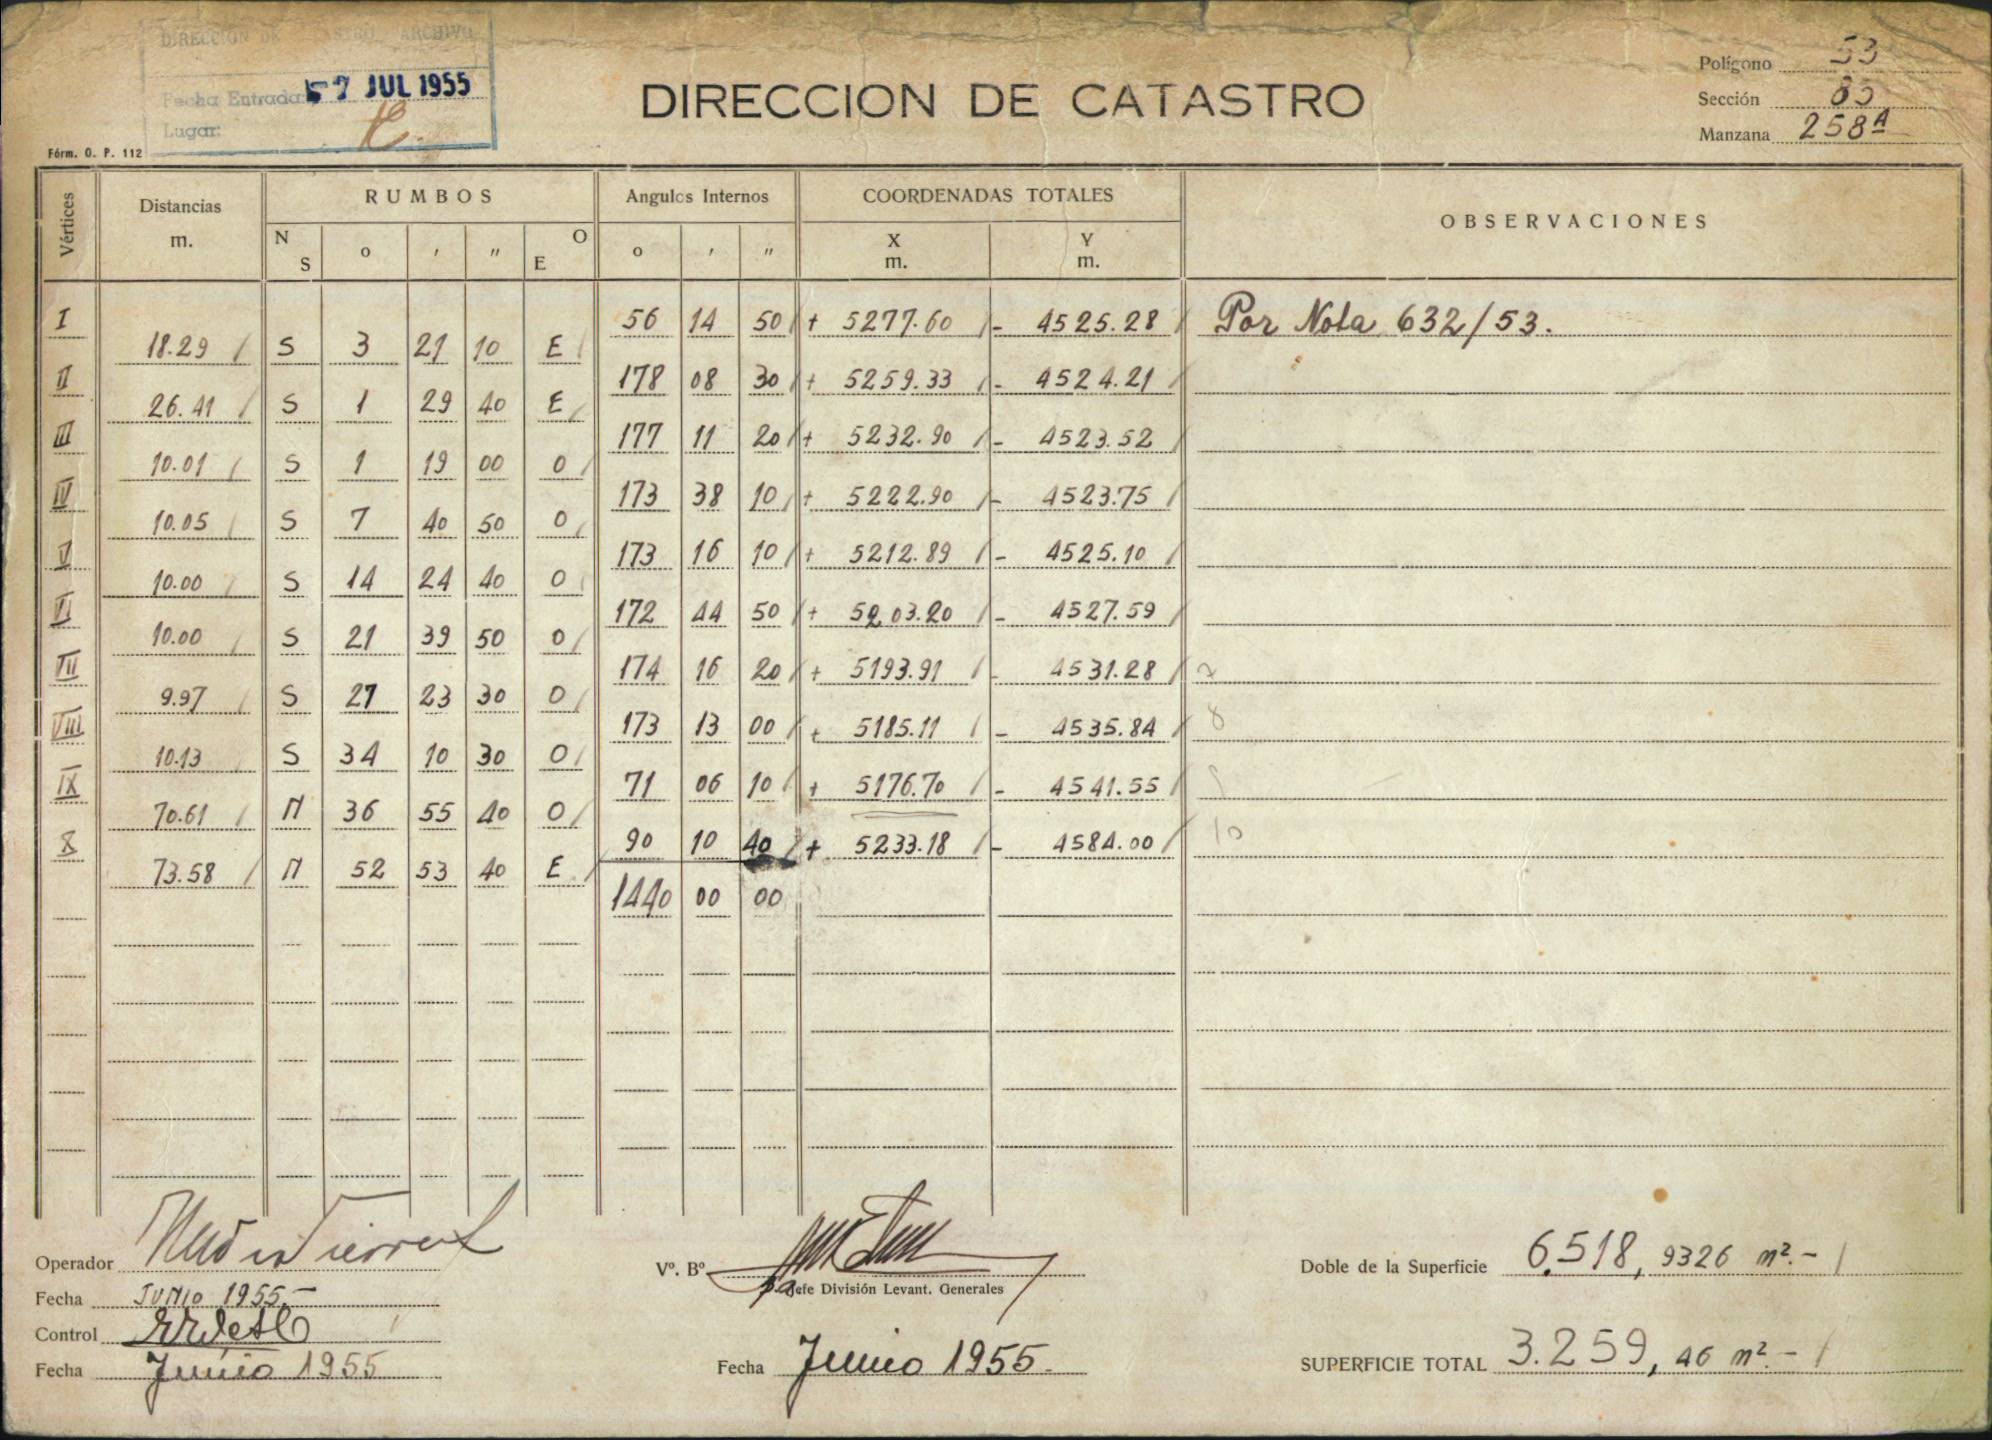 DIRECCION DE CATASTRO ARCHIVO
Fecha Entrada: 7 JUL 1955
Lugar:
Fórm. O. P. 112
DIRECCION DE CATASTRO
Polígono 53
Sección 83
Manzana 258A
Vértices Distancias m. RUMBOS Angulos Internos COORDENADAS TOTALES OBSERVACIONES
N S o ' " O E o ' " X m. Y m.
I 56 14 50 + 5277.60 - 4525.28 Por Nota 632/53.
18.29 S 3 21 10 E
II 178 08 30 + 5259.33 - 4524.21
26.41 S 1 29 40 E
III 177 11 20 + 5232.90 - 4523.52
10.01 S 1 19 00 O
IV 173 38 10 + 5222.90 - 4523.75
10.05 S 7 40 50 O
V 173 16 10 + 5212.89 - 4525.10
10.00 S 14 24 40 O
VI 172 44 50 + 5203.20 - 4527.59
10.00 S 21 39 50 O
VII 174 16 20 + 5193.91 - 4531.28 7
9.97 S 27 23 30 O
VIII 173 13 00 + 5185.11 - 4535.84 8
10.13 S 34 10 30 O
IX 71 06 10 + 5176.70 - 4541.55
70.61 N 36 55 40 O
X 90 10 40 + 5233.18 - 4584.00 10
73.58 N 52 53 40 E
1440 00 00
Operador
Fecha JUNIO 1955.-
Control
Fecha Junio 1955
Vº. Bº
Jefe División Levant. Generales
Fecha Junio 1955.
Doble de la Superficie 6.518, 9326 m².-
SUPERFICIE TOTAL 3.259, 46 m².-